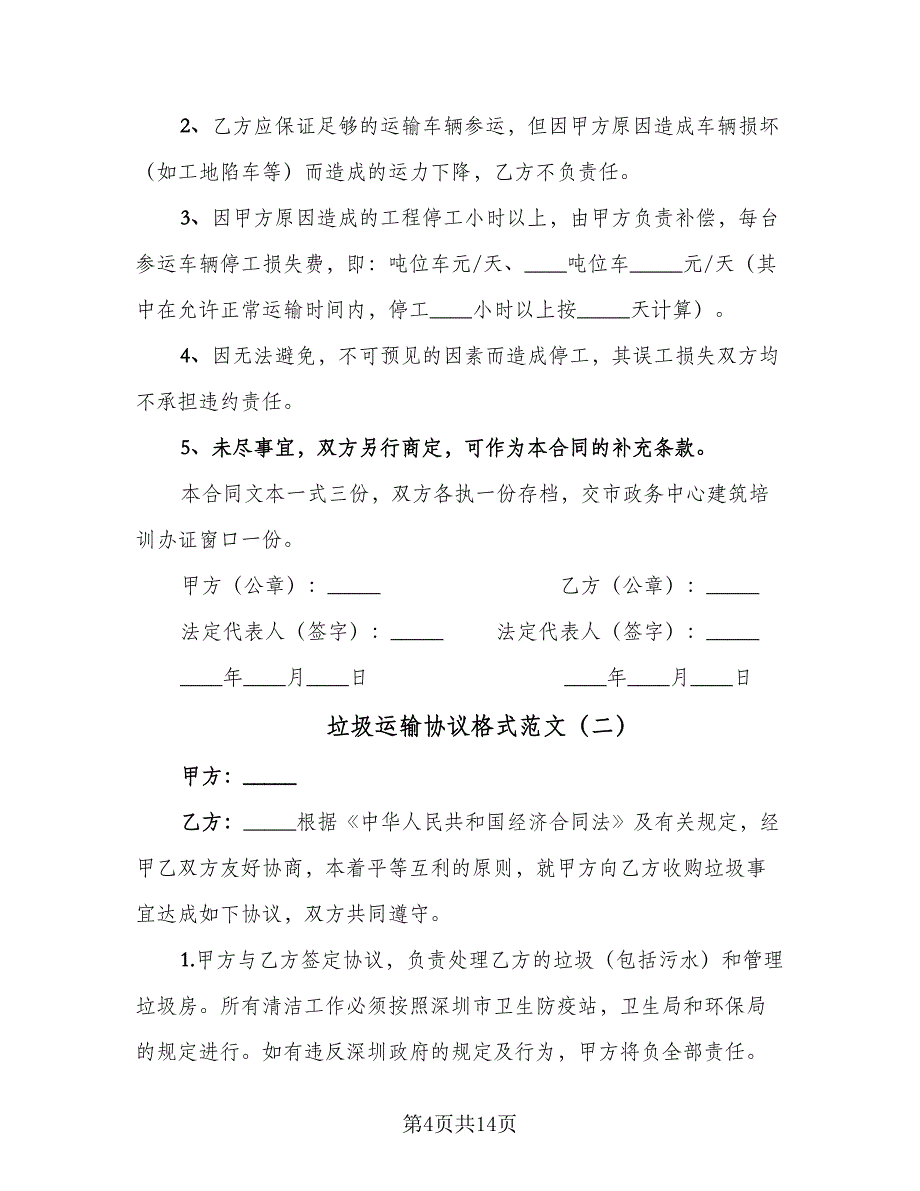 2、乙方应保证足够的运输车辆参运，但因甲方原因造成车辆损坏
（如工地陷车等）而造成的运力下降，乙方不负责任。
3、因甲方原因造成的工程停工小时以上，由甲方负责补偿，每台
参运车辆停工损失费，即：吨位车元/天、____吨位车_____元/天（其
中在允许正常运输时间内，停工____小时以上按_____天计算）。
4、因无法避免，不可预见的因素而造成停工，其误工损失双方均
不承担违约责任。
5、未尽事宜，双方另行商定，可作为本合同的补充条款。
本合同文本一式三份，双方各执一份存档，交市政务中心建筑培
训办证窗口一份。
甲方（公章）：_____ 乙方（公章）：_____
法定代表人（签字）：_____ 法定代表人（签字）：_____
____年____月____日 ____年____月____日
垃圾运输协议格式范文（二）
甲方：_____
乙方：_____根据《中华人民共和国经济合同法》及有关规定，经
甲乙双方友好协商，本着平等互利的原则，就甲方向乙方收购垃圾事
宜达成如下协议，双方共同遵守。
1.甲方与乙方签定协议，负责处理乙方的垃圾（包括污水）和管理
垃圾房。所有清洁工作必须按照深圳市卫生防疫站，卫生局和环保局
的规定进行。如有违反深圳政府的规定及行为，甲方将负全部责任。
第4页共14页